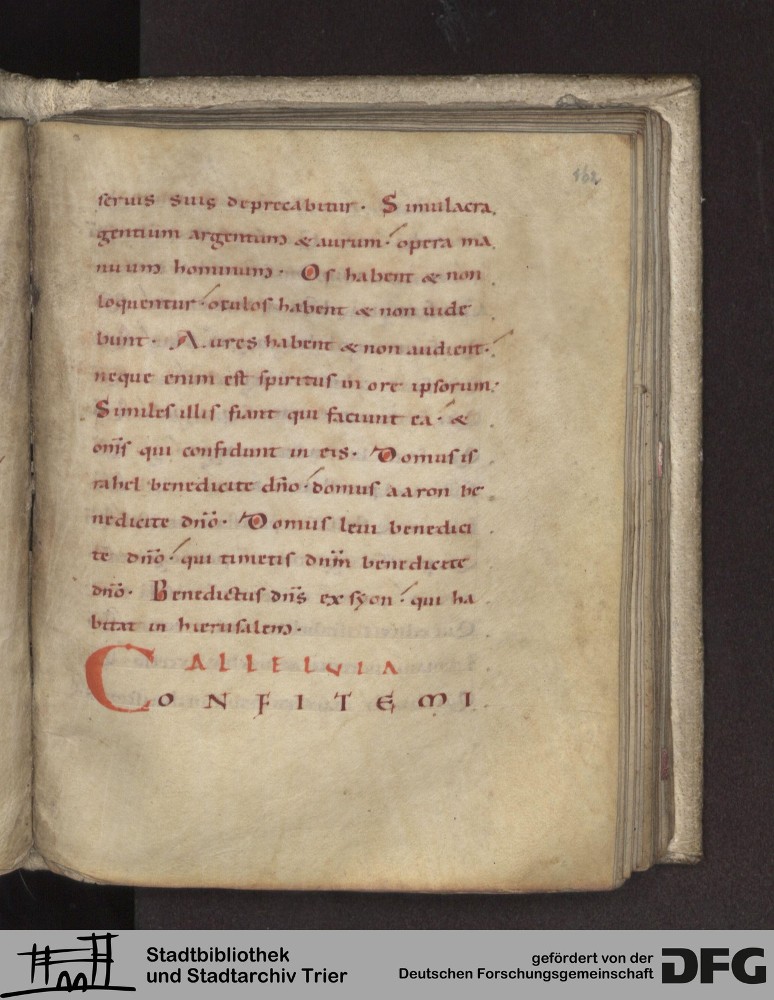 162
seruis suis deprecabitur. Simulacra
gentium argentum & aurum. opera ma
nuum hominum. Os habent & non
loquentur. oculos habent & non uide
bunt. Aures habent & non audient.
neque enim est spiritus in ore ipsorum.
Similes illis fiant qui faciunt ea. &
oms̄ qui confidunt in eis. Domus is
rahel benedicite dn̄o. domus aaron be
nedicite dn̄o. Domus leui benedici
te dn̄o. qui timetis dn̄m benedicite
dn̄o. Benedictus dn̄s ex syon. qui ha
bitat in hierusalem.
ALLELUIA
CONFITEMI
Stadtbibliothek
und Stadtarchiv Trier
gefördert von der
Deutschen Forschungsgemeinschaft
DFG